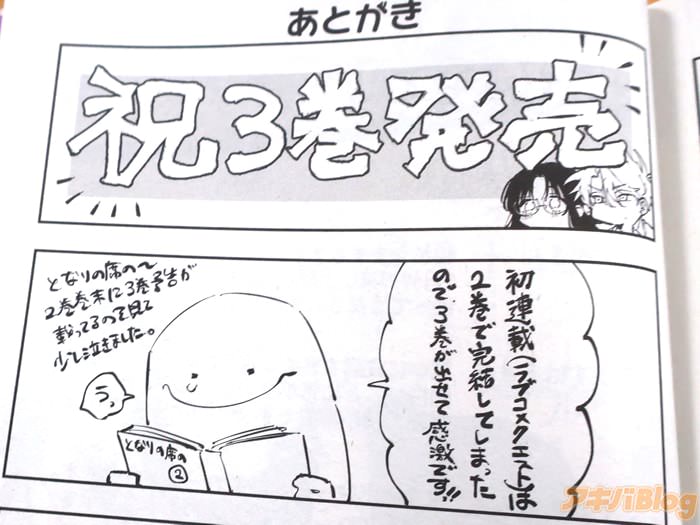 あとがき
祝3巻発売
初連載(ラブコメクエスト)は
2巻で完結してしまった
ので3巻が出せて感激です!!
となりの席の〜
2巻巻末に3巻予告が
載ってるのを見て
少し泣きました。
うっ
となりの席の
②
アキバBlog